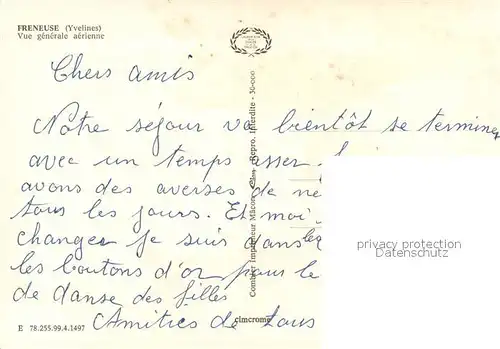 FRENEUSE (Yvelines)
Vue générale aérienne
Chers amis
Notre séjour va bientôt se terminer
avec un temps assez
avons des averses de ne
tous les jours. Et moi
changer je suis dans les
les boutons d'or pour le
de danse des filles
Amitiés de tous
E 78.255.99.4.1497
cimcrome
Combier Imprimeur Mâcon Repro. Interdite - 30-000
privacy protection
Datenschutz